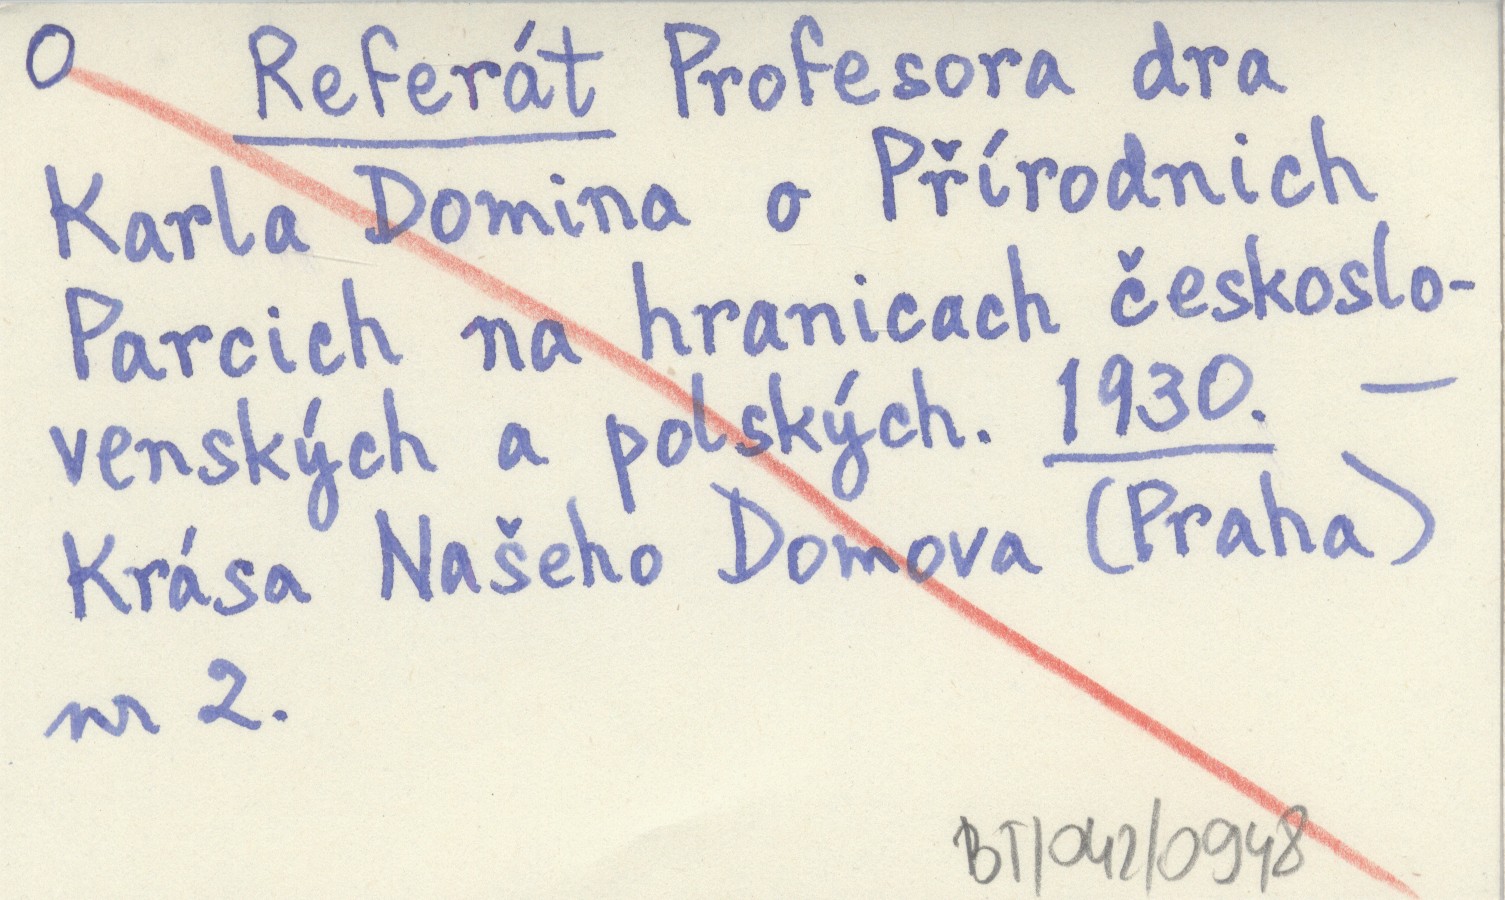 O Referát Profesora dra
Karla Domina o Přírodnich
Parcich na hranicach českoslo-
venských a polských. 1930. —
Krása Našeho Domova (Praha)
nr 2.
BT/042/0948